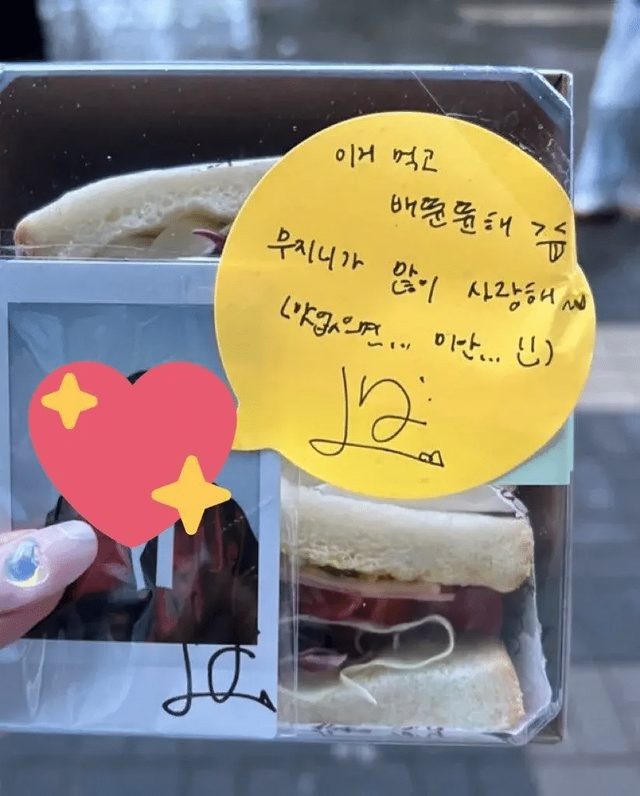 이거 먹고
배뚠뚠해 ><
무지니가 많이 사랑해 ~
(맛없으면... 미안... !!)